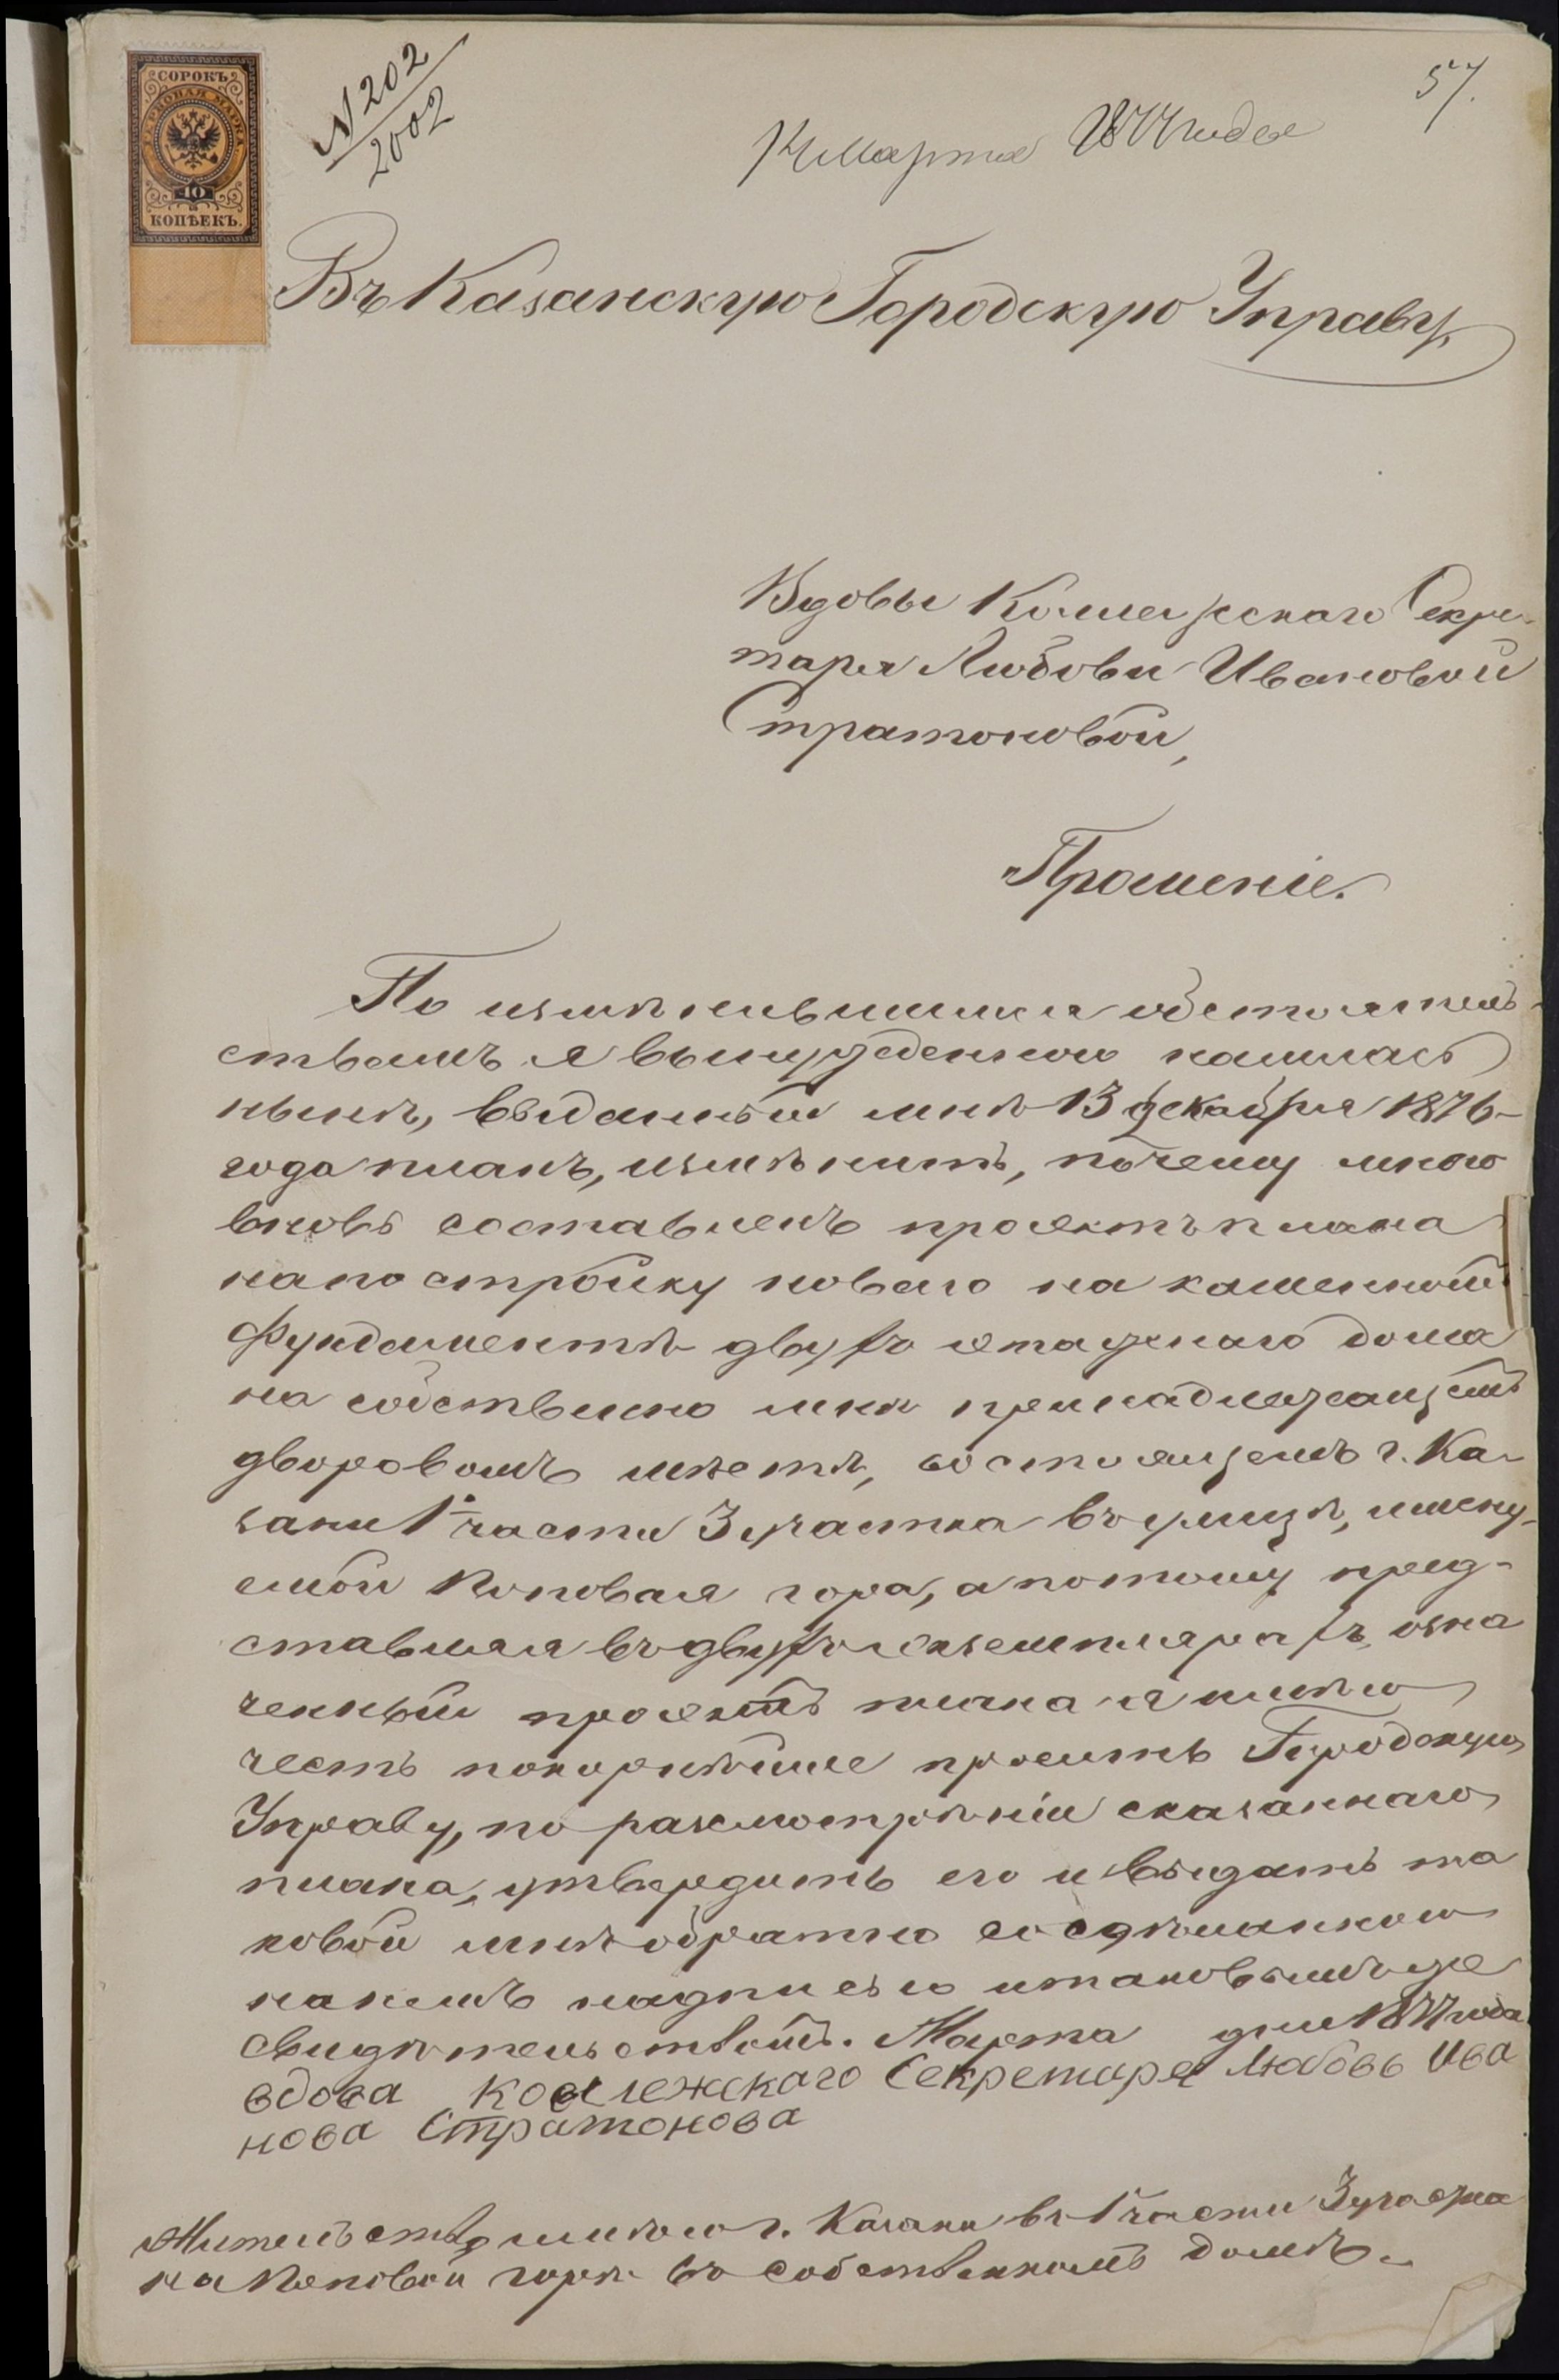 57.
СОРОКЪ
ГЕРБОВАЯ МАРКА
40
КОПѢЕКЪ.
№ 202
2002
Марта 1877 года
Въ Казанскую Городскую Управу,
Вдовы Коллежскаго Секре-
таря Любови Ивановой
Стратоновой,
Прошеніе.
По измѣнившимся обстоятель-
ствамъ я вынужденною нашлась
нынѣ, выданный мнѣ 13 декабря 1876-
года планъ, измѣнить, почему мною
вновь составленъ проэктъ плана
на постройку новаго на каменномъ
фундаментѣ двухъ этажнаго дома
на собственно мнѣ принадлежащемъ
дворовомъ мѣстѣ, состоящемъ г. Ка-
зани 1й части 3 участка въ улицѣ, имену-
емой Поповая гора, а потому пред-
ставляя въ двухъ экземплярахъ озна
ченный проэктъ плана я имѣю
честь покорнѣйше просить Городскую
Управу, по разсмотрѣніи сказаннаго
плана, утвердить его и выдать та
ковой мнѣ обратно со сдѣланною
на немъ надписью и таковымъ же
свидѣтельствомъ. Марта дня 1877 года
вдова Коллежскаго Секретаря Любовь Ива
нова Стратонова
Жительство имѣю г. Казани въ 1 части 3 участка
на Поповой горѣ въ собственномъ домѣ.